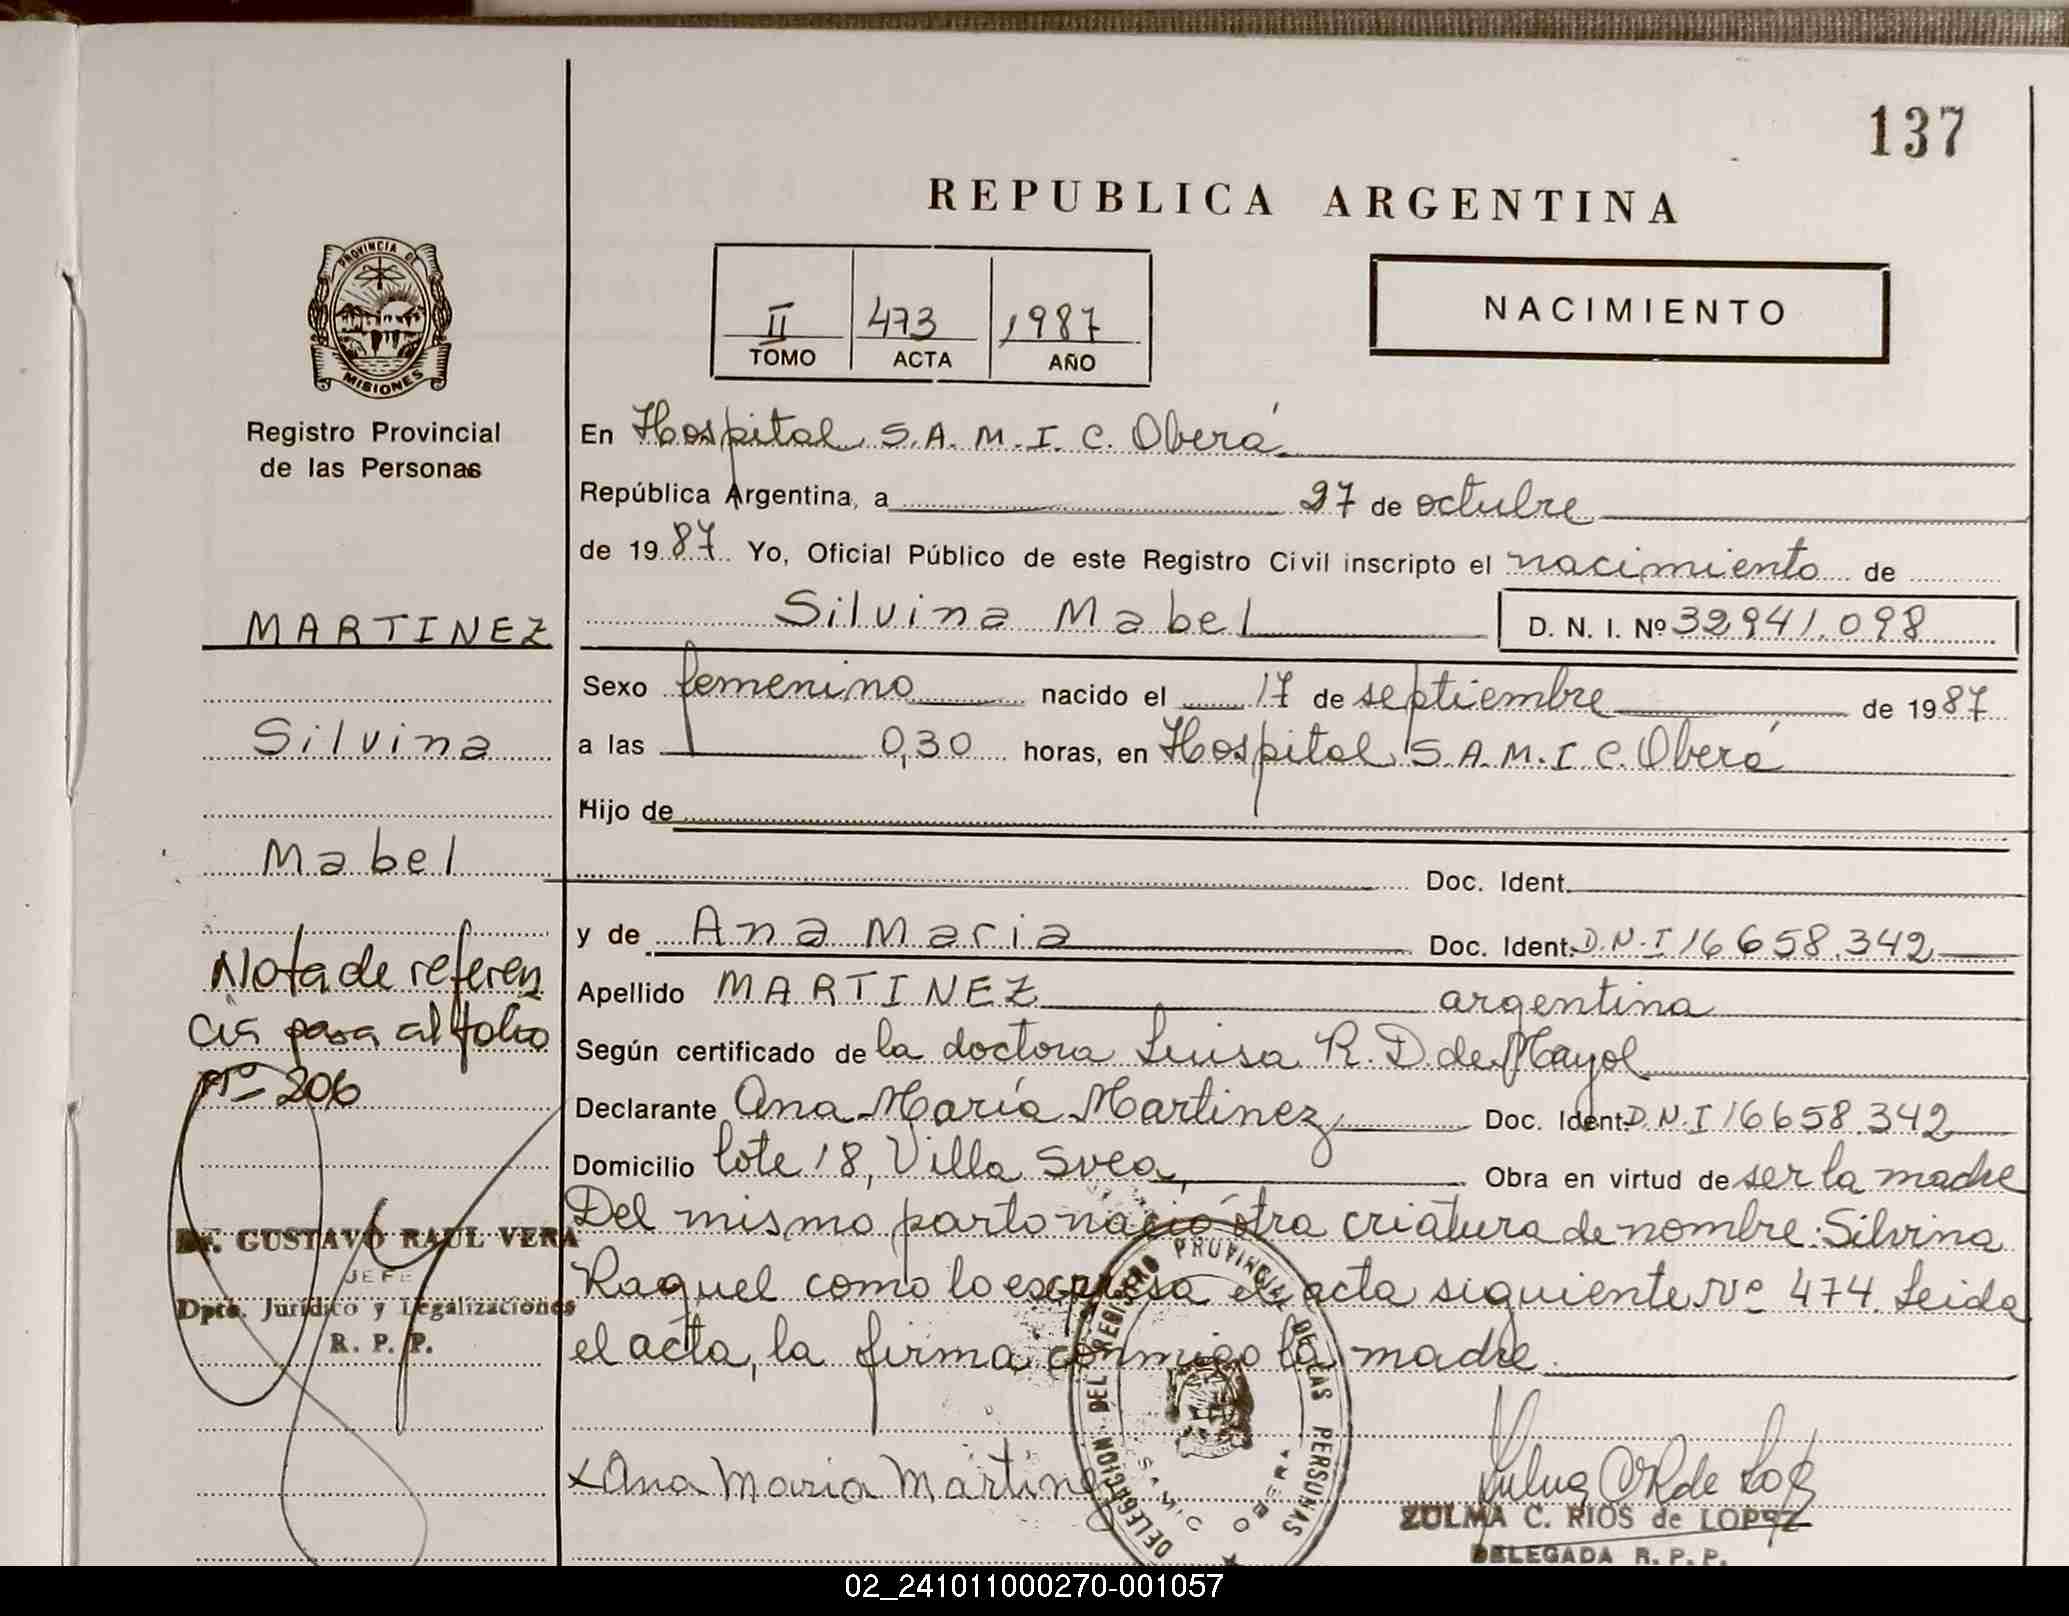 137
REPUBLICA ARGENTINA
PROVINCIA DE
MISIONES
Registro Provincial
de las Personas
II 473 1987
TOMO ACTA AÑO
NACIMIENTO
En Hospital S.A.M.I.C. Oberá
República Argentina, a 27 de octubre
de 1987 Yo, Oficial Público de este Registro Civil inscripto el nacimiento de
MARTINEZ
Silvina Mabel D. N. I. Nº 32.941.098
Sexo femenino nacido el 17 de septiembre de 1987
Silvina
a las 0,30 horas, en Hospital S.A.M.I.C. Oberá
Hijo de
Mabel
Doc. Ident.
y de Ana Maria Doc. Ident. D.N.I 16658.342
Nota de referen
cia pasa al folio
nº 206
Apellido MARTINEZ argentina
Según certificado de la doctora Luisa R. D. de Mayol
Declarante Ana María Martinez Doc. Ident. D.N.I 16658.342
Domicilio lote 18, Villa Svea, Obra en virtud de ser la madre
Del mismo parto nació otra criatura de nombre: Silvina
Raquel como lo expresa el acta siguiente Nº 474. Leida
el acta, la firma conmigo la madre.
Dr. GUSTAVO RAUL VERA
JEFE
Dpto. Jurídico y Legalizaciones
R. P. P.
x Ana Maria Martinez
DELEGACION DEL REGISTRO PROVINCIAL DE LAS PERSONAS
SAMIC OBERA
ZULMA C. RIOS de LOPEZ
DELEGADA R. P. P.
02_241011000270-001057